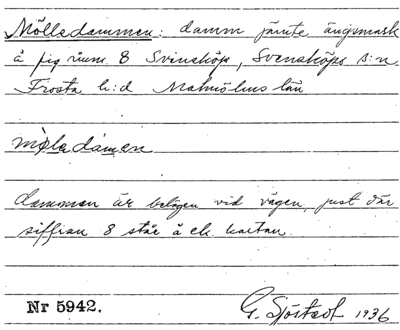 Mölledammen: damm jämte ängsmark
å fig. num. 8 Svenskøp, Svensköps s:n
Frosta h:d Malmöhus län
møledamen
dammen är belägen vid vägen, just där
siffran 8 står å ek. kartan.
Nr 5942.
G. Sjöstedt 1936